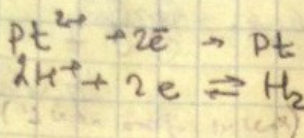 Pt²⁺ + 2ē → Pt
2H⁺ + 2e ⇌ H₂